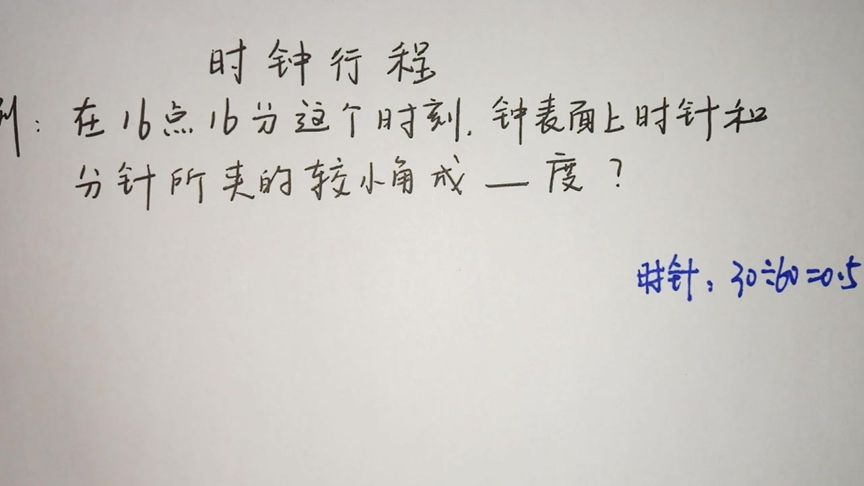 时钟行程
例：在16点16分这个时刻，钟表面上时针和
分针所夹的较小角成__度？
时针：30÷60=0.5